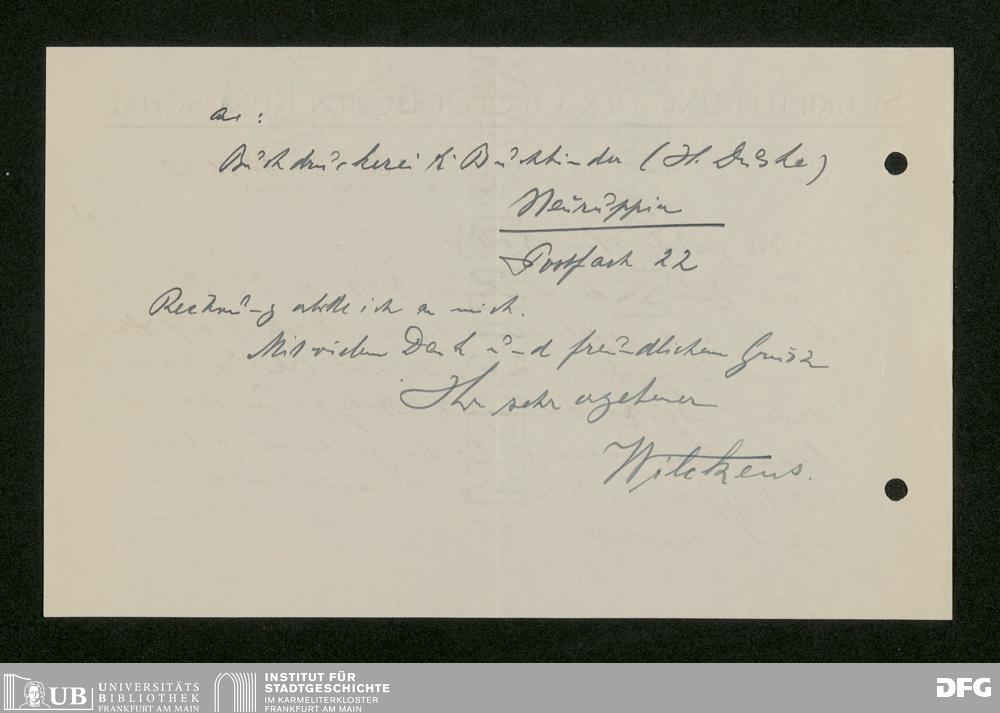 an:
Buchdruckerei K. Buchbinder (H. Duske)
Neuruppin
Postfach 22
Rechnung erbitte ich an mich.
Mit vielem Dank und freundlichem Gruss
Ihr sehr ergebener
Wilckens.
SCHRIFTLEITUNG DER GEOLOGISCHEN RUNDSCHAU
UB UNIVERSITÄTS
BIBLIOTHEK
FRANKFURT AM MAIN
INSTITUT FÜR
STADTGESCHICHTE
IM KARMELITERKLOSTER
FRANKFURT AM MAIN
DFG